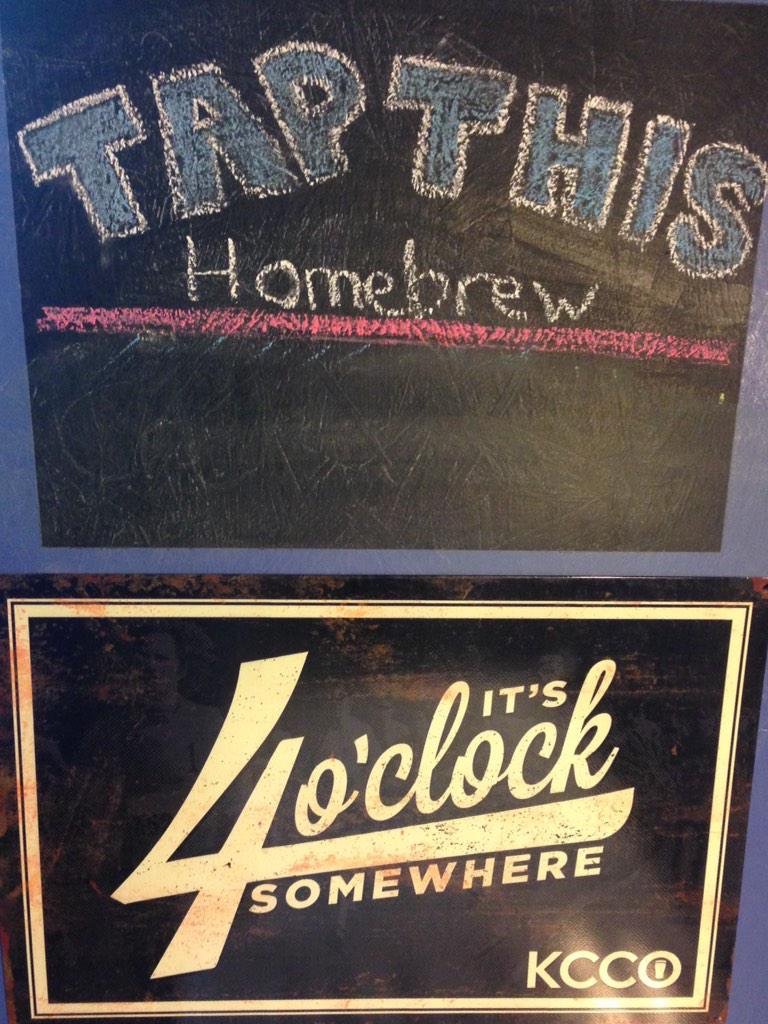 TAP THIS
Homebrew
IT'S
4 o'clock
SOMEWHERE
KCCO